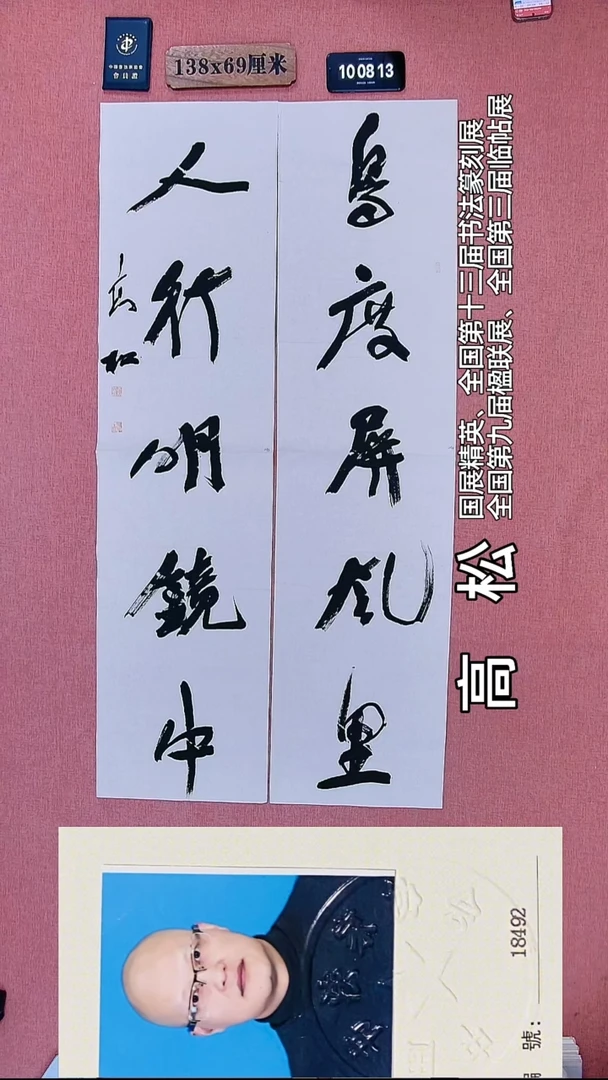 中国书法家协会
会员證
138x69厘米
10 08 13
鸟度屏风里
人行明鏡中
高松
国展精英、全国第十三届书法篆刻展
全国第九届楹联展、全国第三届临帖展
高松
18492
號：